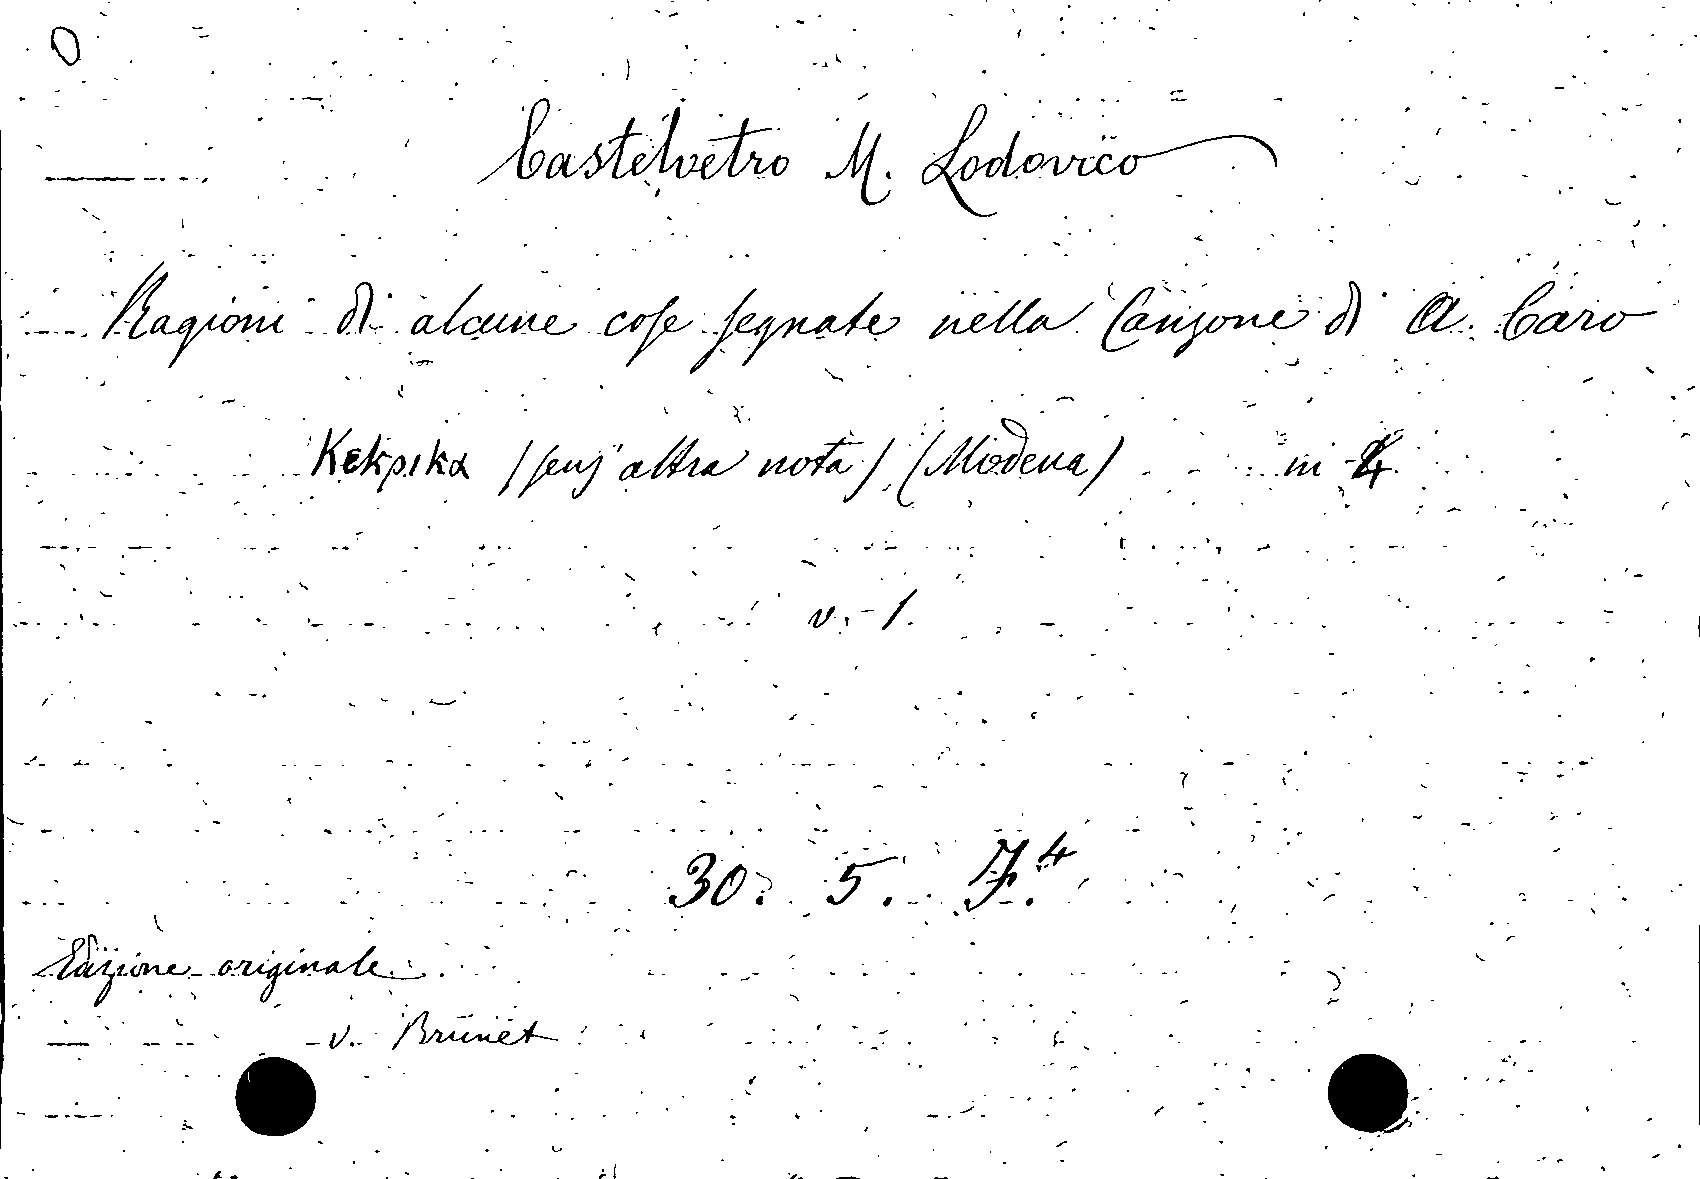 Castelvetro M. Lodovico
Ragioni di alcune cose segnate nella Canzone di A. Caro
Κεκρικα (senz'altra nota) (Modena) in 4
v. 1.
30. 5. F.4
Edizione originale.
v. Brunet